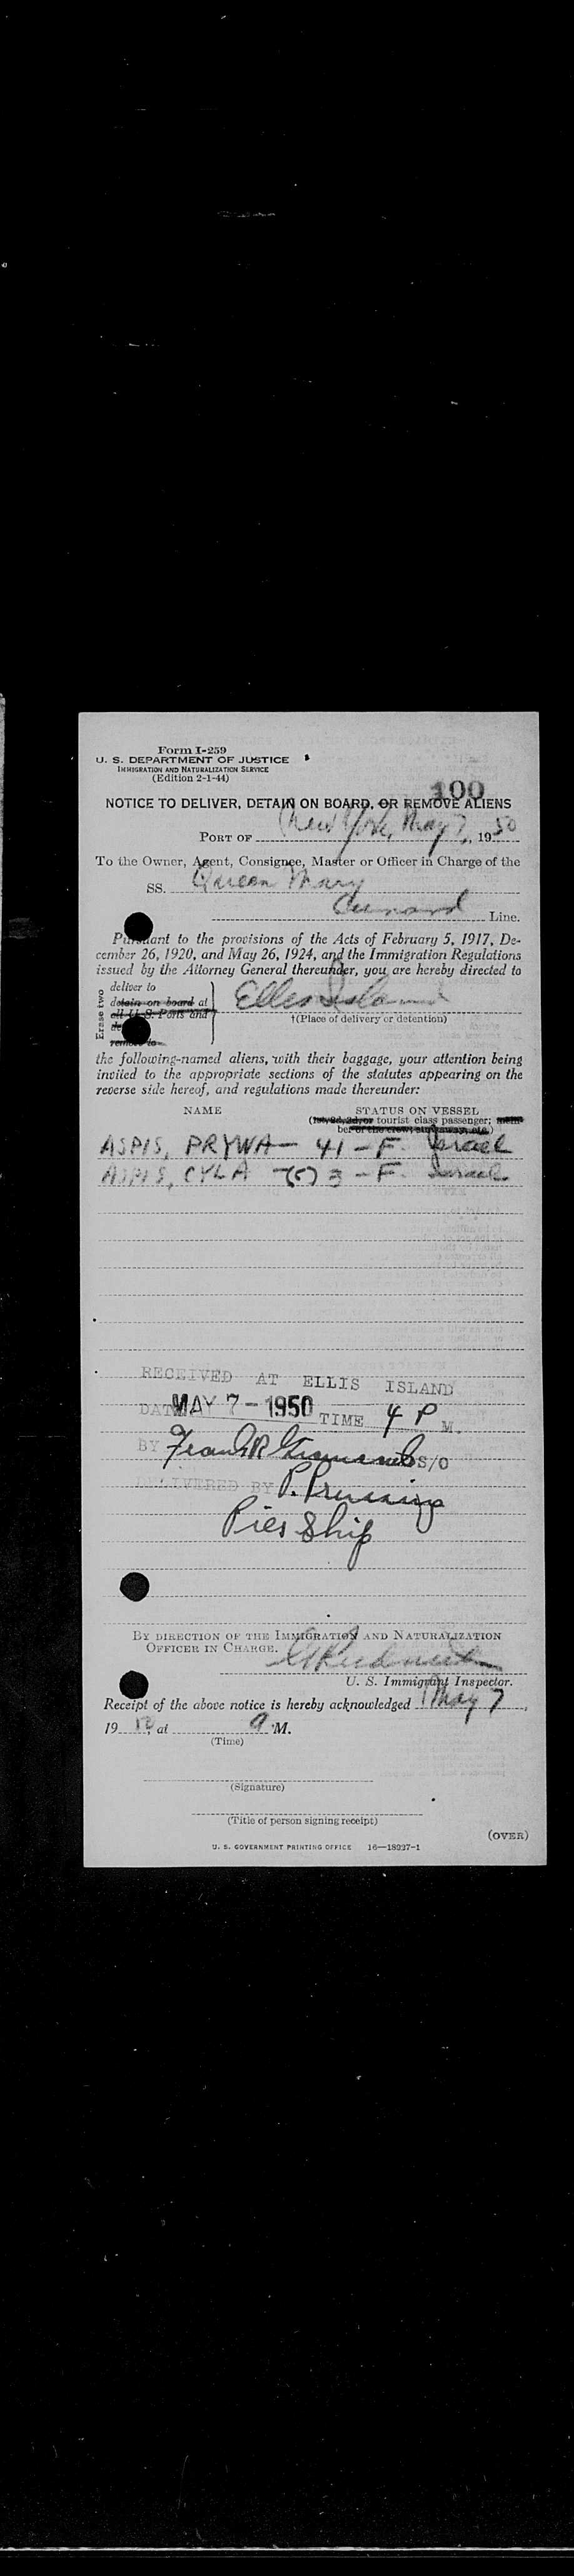 Form I-259
U. S. DEPARTMENT OF JUSTICE
IMMIGRATION AND NATURALIZATION SERVICE
(Edition 2-1-44)
100
NOTICE TO DELIVER, DETAIN ON BOARD, OR REMOVE ALIENS
PORT OF New York, May 7, 1950
To the Owner, Agent, Consignee, Master or Officer in Charge of the
SS. Queen Mary
Cunard Line.
Pursuant to the provisions of the Acts of February 5, 1917, De-
cember 26, 1920, and May 26, 1924, and the Immigration Regulations
issued by the Attorney General thereunder, you are hereby directed to
Erase two
deliver to
detain on board at
all U.S. Ports and
remove to
Ellis Island
†(Place of delivery or detention)
the following-named aliens, with their baggage, your attention being
invited to the appropriate sections of the statutes appearing on the
reverse side hereof, and regulations made thereunder:
NAME STATUS ON VESSEL
(1st, 2d, 3d, or tourist class passenger; mem-
ber of the crew, stowaway, etc.)
ASPIS, PRYWA - 41 - F. Israel
ASPIS, CYLA 3 - F. Israel
RECEIVED AT ELLIS ISLAND
DATE MAY 7 - 1950 TIME 4 P M.
BY Frank R S/O
DELIVERED BY P.
Pier Ship
BY DIRECTION OF THE IMMIGRATION AND NATURALIZATION
OFFICER IN CHARGE.
U. S. Immigrant Inspector.
Receipt of the above notice is hereby acknowledged May 7,
19, at M.
(Time)
(Signature)
(Title of person signing receipt)
(OVER)
U. S. GOVERNMENT PRINTING OFFICE 16—18927-1